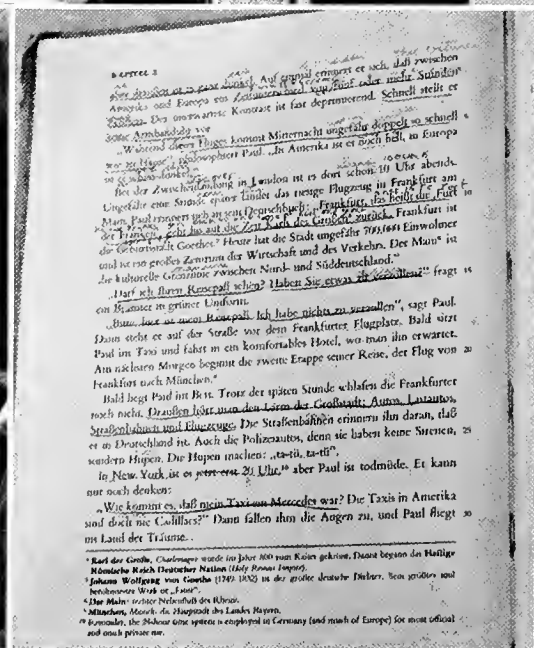 aber draußen ist es ganz dunkel. Auf einmal erinnert er sich, daß zwischen
Amerika und Europa ein Zeitunterschied von fünf oder mehr Stunden
Der momentane Kontrast ist fast deprimierend. Schnell stellt er
seine Armbanduhr vor.
„Während dieses Fluges kommt Mitternacht ungefähr doppelt so schnell 5
wie zu Hause“, philosophiert Paul. „In Amerika ist es noch hell, in Europa
ist es schon dunkel.“
Bei der Zwischenlandung in London ist es dort schon 10 Uhr abends.
Ungefähr eine Stunde später landet das riesige Flugzeug in Frankfurt am
Main. Paul erinnert sich an sein Deutschbuch: „Frankfurt, das heißt die ‚Furt 10
der Franken‘, geht bis auf die Zeit Karls des Großen zurück. Frankfurt ist
die Geburtsstadt Goethes. Heute hat die Stadt ungefähr 700,000 Einwohner
und ist ein großes Zentrum der Wirtschaft und des Verkehrs. Der Main ist
die kulturelle Grenzlinie zwischen Nord- und Süddeutschland.“
„Darf ich Ihren Reisepaß sehen? Haben Sie etwas zu verzollen?“ fragt 15
ein Beamter in grüner Uniform.
„Bitte, hier ist mein Reisepaß. Ich habe nichts zu verzollen“, sagt Paul.
Dann steht er auf der Straße vor dem Frankfurter Flugplatz. Bald sitzt
Paul im Taxi und fährt in ein komfortables Hotel, wo man ihn erwartet.
Am nächsten Morgen beginnt die zweite Etappe seiner Reise, der Flug von 20
Frankfurt nach München.⁹
Bald liegt Paul im Bett. Trotz der späten Stunde schlafen die Frankfurter
noch nicht. Draußen hört man den Lärm der Großstadt: Autos, Lastautos,
Straßenbahnen und Flugzeuge. Die Straßenbahnen erinnern ihn daran, daß
er in Deutschland ist. Auch die Polizeiautos, denn sie haben keine Sirenen, 25
sondern Hupen. Die Hupen machen: „ta-tü, ta-tü“.
In New York ist es jetzt erst 20 Uhr,¹⁰ aber Paul ist todmüde. Er kann
nur noch denken:
„Wie kommt es, daß mein Taxi ein Mercedes war? Die Taxis in Amerika
sind doch nie Cadillacs?“ Dann fallen ihm die Augen zu, und Paul fliegt 30
ins Land der Träume.
Karl der Große, Charlemagne wurde im Jahre 800 zum Kaiser gekrönt. Damit begann das Heilige
Römische Reich Deutscher Nation (Holy Roman Empire).
Johann Wolfgang von Goethe (1749-1832) ist der größte deutsche Dichter. Sein größtes und
berühmtestes Werk ist „Faust“.
Der Main: rechter Nebenfluß des Rheins.
⁹ München, Munich: die Hauptstadt des Landes Bayern.
¹⁰ Remember, the 24-hour time system is employed in Germany (and much of Europe) for most official
and much private use.